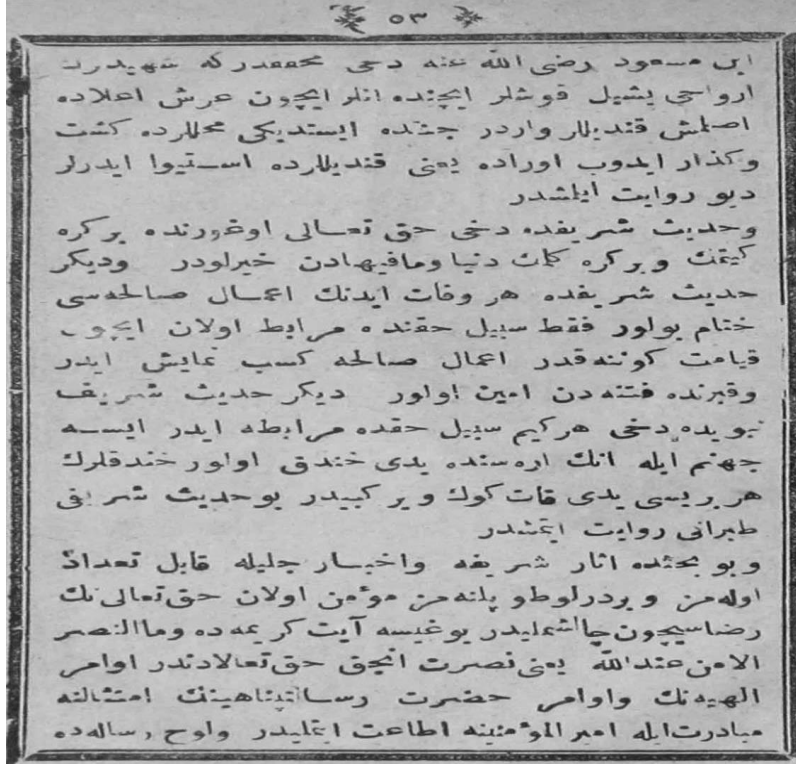 ٥٣
ابن مسعود رضى الله عنه دخى محققدركه شهيدرك
ارواحى يشيل قوشلر ايچنده انلر ايچون عرش اعلاده
اصلمش قنديللر واردر جنتده ايستديكى محللرده كشت
وكذار ايدوب اوراده يعنى قنديللرده استيوا ايدرلر
ديو روايت ايلمشدر
وحديث شريفده دخى حق تعالى اوغورنده بركره
كيتمك وبركره كلمك دنيا ومافيهادن خيرلودر وديكر
حديث شريفده هر وفات ايدنك اعمال صالحه سى
ختام بولور فقط سبيل حقنده مرابط اولان ايچون
قيامت كوننه قدر اعمال صالحه كسب نمايش ايدر
وقبرنده فتنه دن امين اولور ديكر حديث شريف
نبويده دخى هركيم سبيل حقده مرابطه ايدر ايسه
جهنم ايله انك اره سنده يدى خندق اولور خندقلرك
هر بريسى يدى قات كوك وير كبيدر بوحديث شريفى
طبرانى روايت ايتمشدر
وبو بحثده اثار شريفه واخبار جليله قابل تعداد
اوله مز وبردرلوطو يلنه مز مؤمن اولان حق تعالى نك
رضاسيچون چالشمليدر يوغيسه آيت كريمه ده وماالنصر
الامن عندالله يعنى نصرت انجق حق تعالادندر اوامر
الهيه نك واوامر حضرت رسالتپناهينك امتثالنه
مبادرت ايله امير المؤمنينه اطاعت ايتمليدر واوچ رساله ده